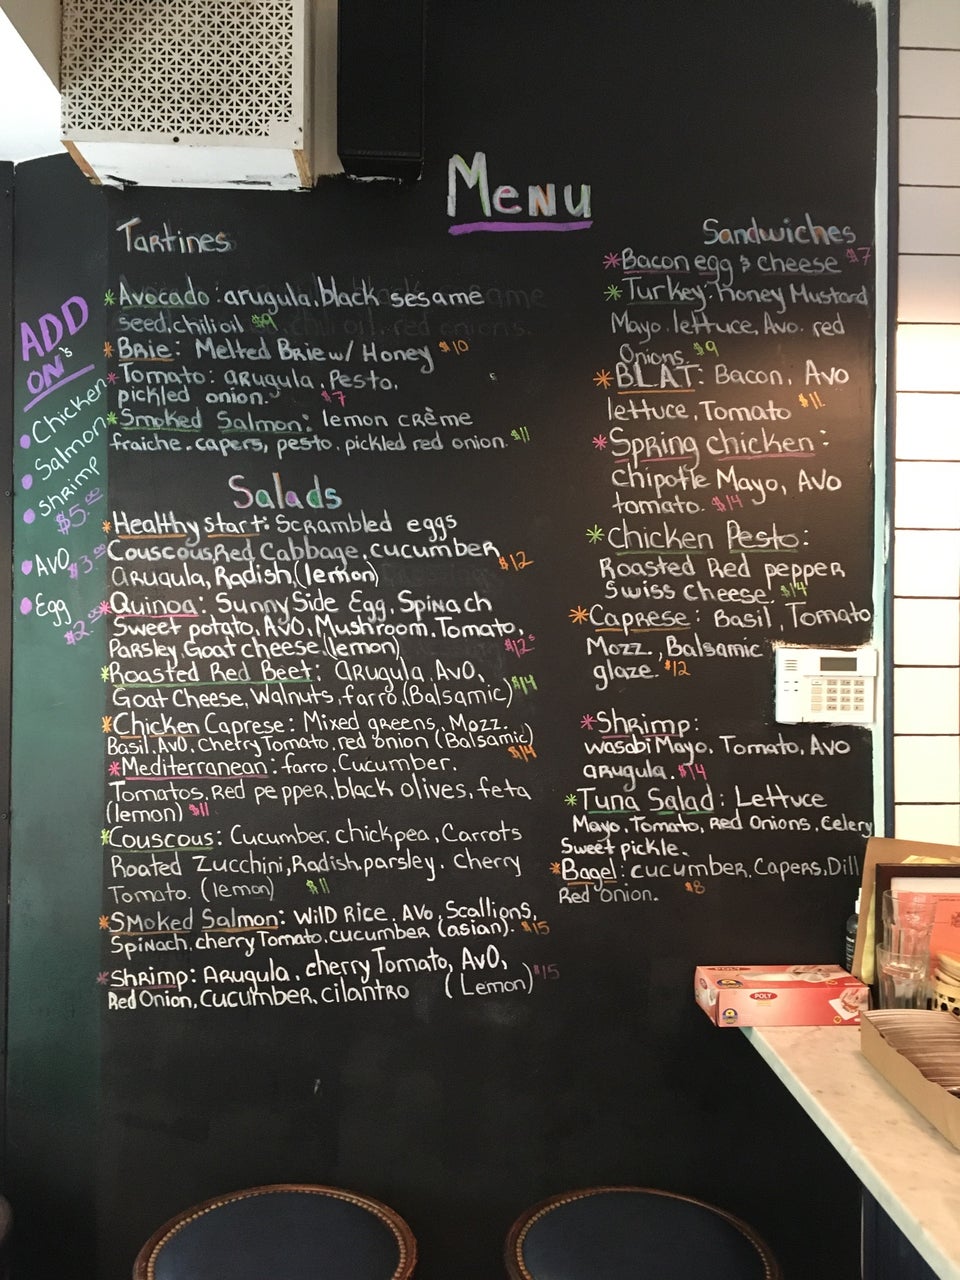 Menu
Tartines
Avocado: arugula, black sesame
seed, chili oil $9
Brie: Melted Brie w/ Honey $10
Tomato: arugula, Pesto,
pickled onion. $7
Smoked Salmon: lemon crème
fraiche, capers, pesto, pickled red onion $11
ADD
ON's
Chicken
Salmon
Shrimp
$5.00
AVO $3.00
Egg
$2.00
Salads
Healthy start: Scrambled eggs
Couscous, Red Cabbage, cucumber
Arugula, Radish, (lemon) $12
Quinoa: Sunny Side Egg, Spinach
Sweet potato, AVO, Mushroom, Tomato,
Parsley, Goat cheese (lemon) $12
Roasted Red Beet: arugula, AVO,
Goat Cheese, Walnuts, farro, (Balsamic) $14
Chicken Caprese: Mixed greens, Mozz.
Basil, AVO, Cherry Tomato, red onion (Balsamic) $14
Mediterranean: farro, Cucumber,
Tomatos, Red pepper, black olives, feta
(lemon) $11
Couscous: Cucumber, chickpea, Carrots
Roated Zucchini, Radish, parsley, Cherry
Tomato. (lemon) $11
Smoked Salmon: WilD Rice, AVO, Scallions,
Spinach, cherry Tomato, cucumber (asian). $15
Shrimp: Arugula, cherry Tomato, AVO,
Red Onion, Cucumber, cilantro (Lemon) $15
Sandwiches
Bacon egg & cheese $7
Turkey: honey Mustard
Mayo, lettuce, Avo. red
Onions. $9
BLAT: Bacon, Avo
lettuce, Tomato $11
Spring chicken:
Chipotle Mayo, AVO
tomato. $14
Chicken Pesto:
Roasted Red pepper
Swiss Cheese. $14
Caprese: Basil, Tomato
Mozz., Balsamic
glaze. $12
Shrimp:
wasabi Mayo, Tomato, Avo
arugula. $14
Tuna Salad: Lettuce
Mayo, Tomato, Red Onions, Celery
Sweet pickle.
Bagel: cucumber, Capers, Dill
Red Onion. $8
POLY
POLY